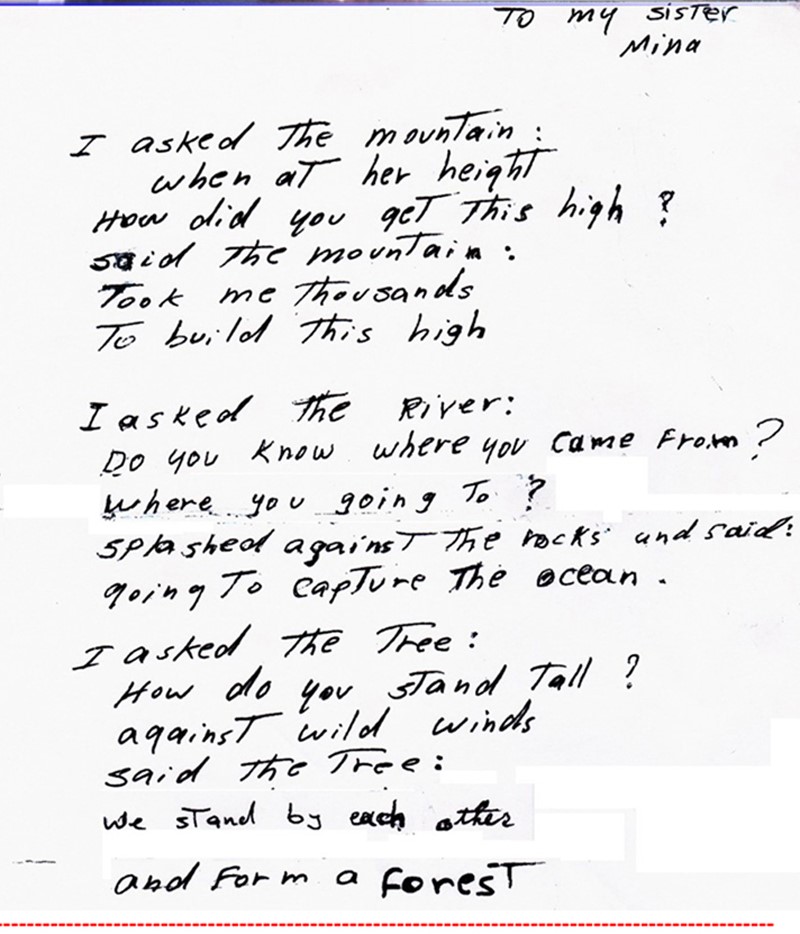 To my sister
Mina
I asked the mountain:
when at her height
How did you get this high ?
said the mountain:
Took me thousands
To build this high
I asked the River:
Do you know where you came From?
Where you going To ?
splashed against the rocks and said:
going To capture the ocean.
I asked the Tree:
How do you stand Tall ?
against wild winds
said the Tree:
we stand by each other
and form a forest